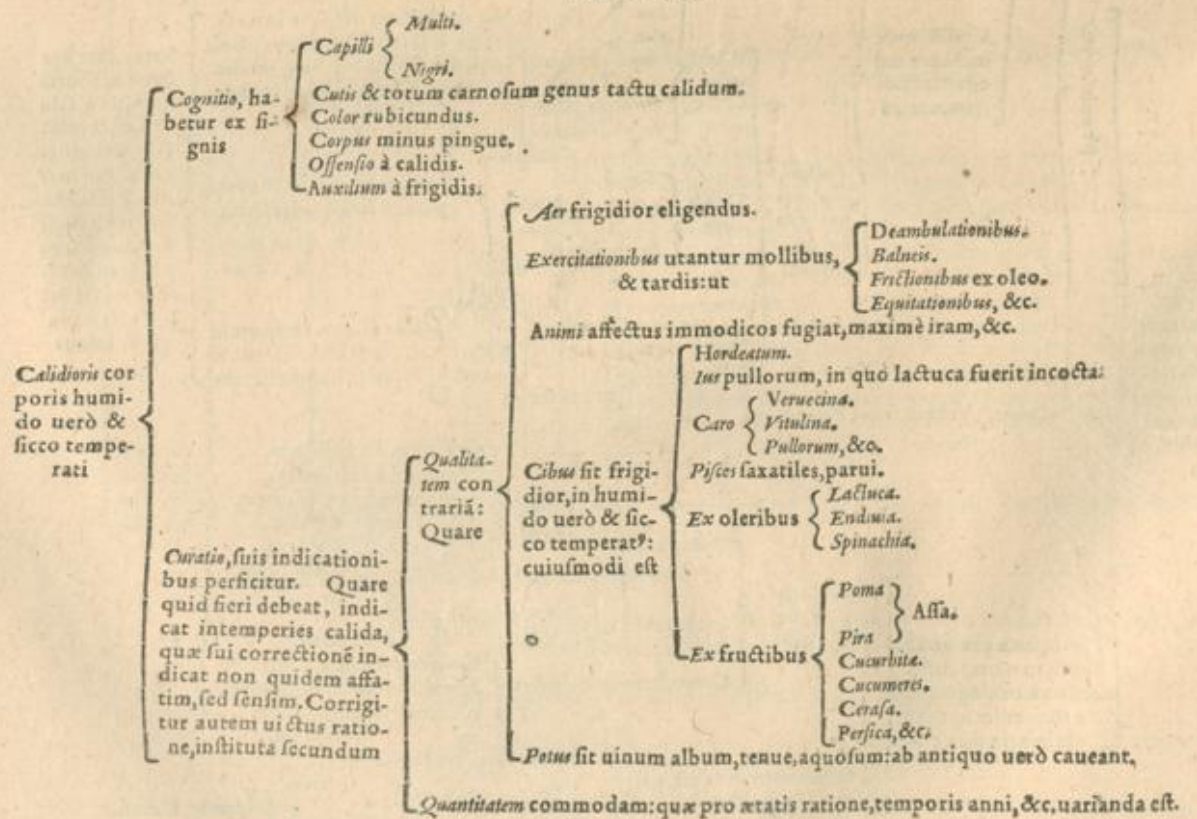 Calidioris cor
poris humi-
do uerò &
sicco tempe-
rati
Cognitio, ha-
betur ex si-
gnis
Capilli
Multi.
Nigri.
Cutis & totum carnosum genus tactu calidum.
Color rubicundus.
Corpus minus pingue.
Offensio à calidis.
Auxilium à frigidis.
Curatio, suis indicationi-
bus perficitur. Quare
quid fieri debeat, indi-
cat intemperies calida,
quæ sui correctionē in-
dicat non quidem affa-
tim, sed sensim. Corrigi-
tur autem uictus ratio-
ne, instituta secundum
Qualita-
tem con
trariā:
Quare
Aer frigidior eligendus.
Exercitationibus utantur mollibus,
& tardis: ut
Deambulationibus.
Balneis.
Frictionibus ex oleo.
Equitationibus, &c.
Animi affectus immodicos fugiat, maximè iram, &c.
Cibus sit frigi-
dior, in humi-
do uerò & sic-
co temperatꝰ:
cuiusmodi est
Hordeatum.
Ius pullorum, in quo lactuca fuerit incocta:
Caro
Veruecina.
Vitulina.
Pullorum, &c.
Pisces saxatiles, parui.
Ex oleribus
Lactuca.
Endiuia.
Spinachia.
Ex fructibus
Poma
Pira
Assa.
Cucurbitæ.
Cucumeres.
Cerasa.
Persica, &c.
Potus sit uinum album, tenue, aquosum: ab antiquo uerò caueant.
Quantitatem commodam: quæ pro ætatis ratione, temporis anni, &c, uarianda est.